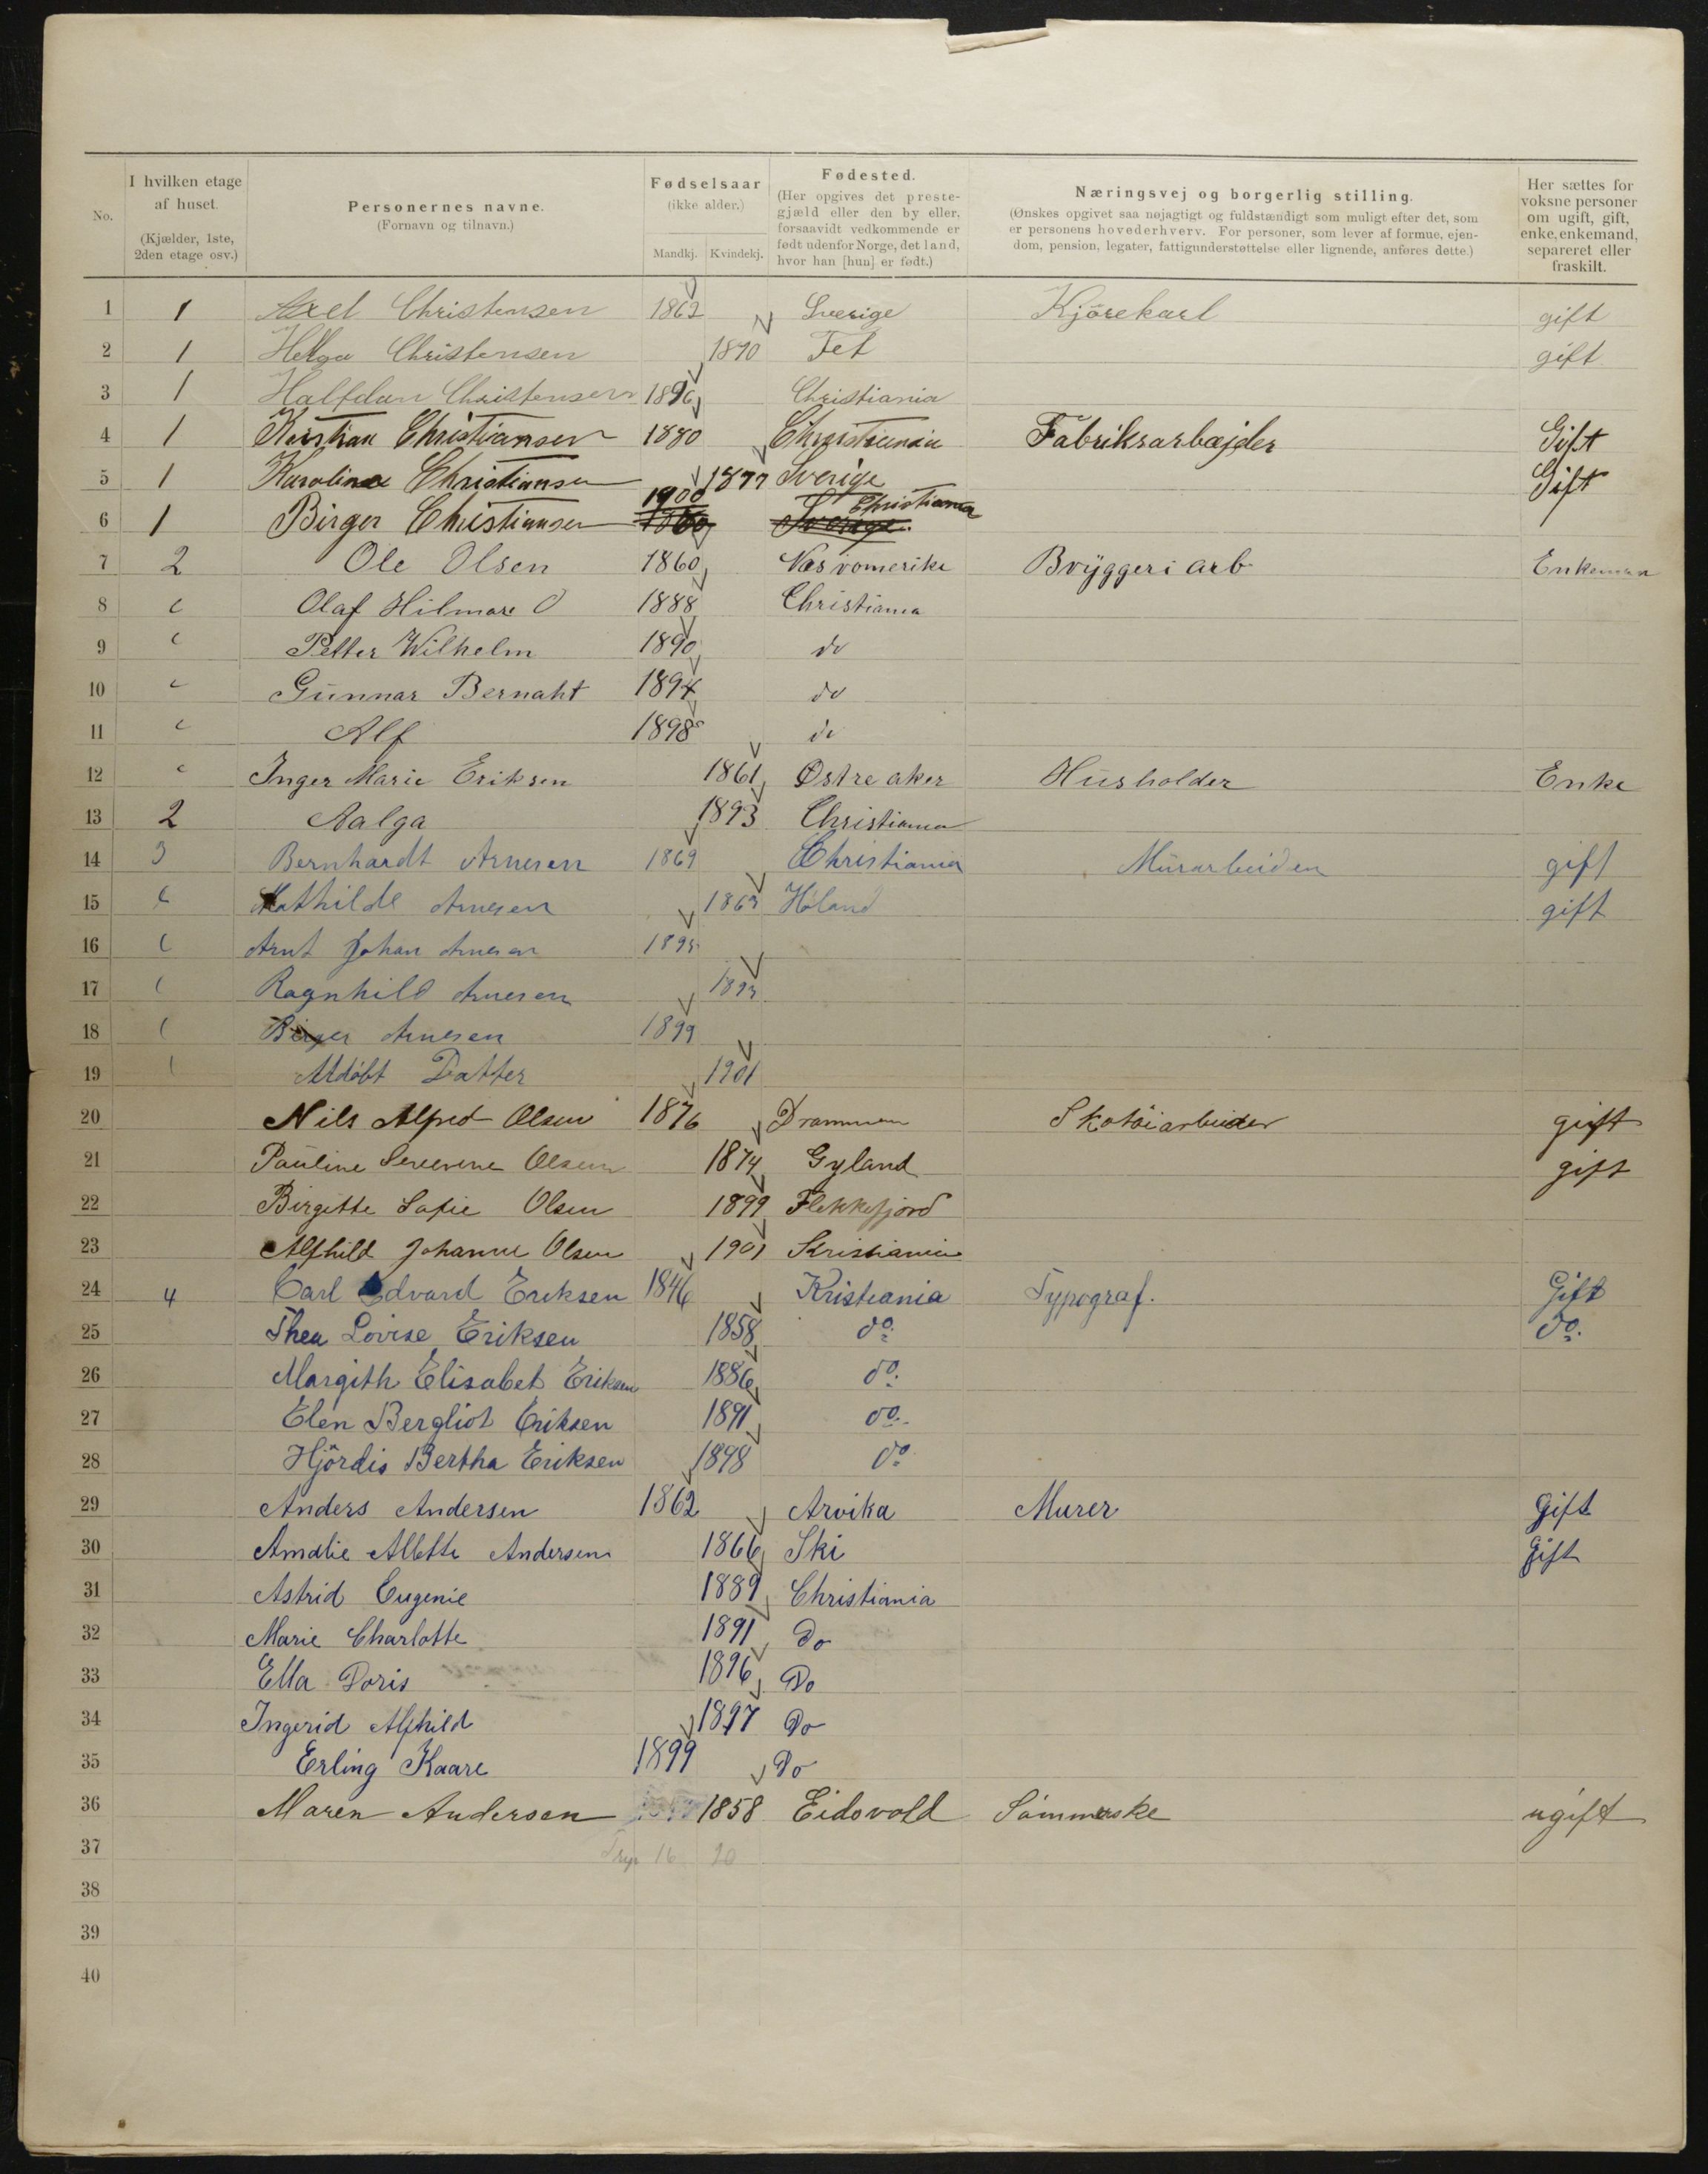 No.
I hvilken etage af huset. (Kjælder, 1ste, 2den etage osv.)
Personernes navne. (Fornavn og tilnavn.)
Fødselsaar (ikke alder.) Mandkj. Kvindekj.
Fødested. (Her opgives det prestegjæld eller den by eller, forsaavidt vedkommende er født udenfor Norge, det land, hvor han [hun] er født.)
Næringsvej og borgerlig stilling. (Ønskes opgivet saa nøjagtigt og fuldstændigt som muligt efter det, som er personens hovederhverv. For personer, som lever af formue, ejendom, pension, legater, fattigunderstøttelse eller lignende, anføres dette.)
Her sættes for voksne personer om ugift, gift, enke, enkemand, separeret eller fraskilt.
1 1 Axel Christensen 1862 Sverige Kjørekarl gift
2 1 Helga Christensen 1870 Fet gift
3 1 Halfdan Christensen 1896 Christiania
4 1 Kristian Christiansen 1880 Christiania Fabriksarbejder Gift
5 1 Karoline Christiansen 1877 Sverige Gift
6 1 Birger Christiansen 1900 Christiania
7 2 Ole Olsen 1860 Bryggeri arb Enkeman
8 " Olaf Hilmar O 1888 Christiania
9 " Petter Wilhelm 1890 do
10 " Gunnar Bernaht 1894 do
11 " Alf 1898 do
12 " Inger Marie Eriksen 1861 Østre aker Husholder Enke
13 2 Aalga 1893 Christiania
14 3 Bernhardt Arnesen 1869 Christiania Murarbeider gift
15 " Mathilde Arnesen Høland gift
16 " Arnt Johan Arnesen
17 " Ragnhild Arnesen
18 " Birger Arnesen 1899
19 " Udöbt Datter 1901
20 Nils Alfred Olsen 1876 Drammen Skotöiarbeider gift
21 Pauline Severine Olsen 1874 Gyland gift
22 Birgitte Sofie Olsen 1899 Flekkefjord
23 Alfhild Johanne Olsen 1901 Kristiania
24 4 Carl Edvard Eriksen 1846 Kristiania Typograf. Gift
25 Thea Lovise Eriksen 1858 do. do.
26 Margith Elisabet Eriksen 1886 do.
27 Elen Bergliot Eriksen 1891 do.
28 Hjördis Bertha Eriksen 1898 do
29 Anders Andersen 1862 Arvika Murer Gift
30 Amalie Alette Andersen 1866 Ski Gift
31 Astrid Eugenie 1889 Christiania
32 Marie Charlotte 1891 Do
33 Ella Doris 1896 Do
34 Ingerid Alfhild 1897 Do
35 Erling Kaare 1899 Do
36 Maren Andersen 1858 Eidsvold Sömmerske ugift
37 16 20
38
39
40